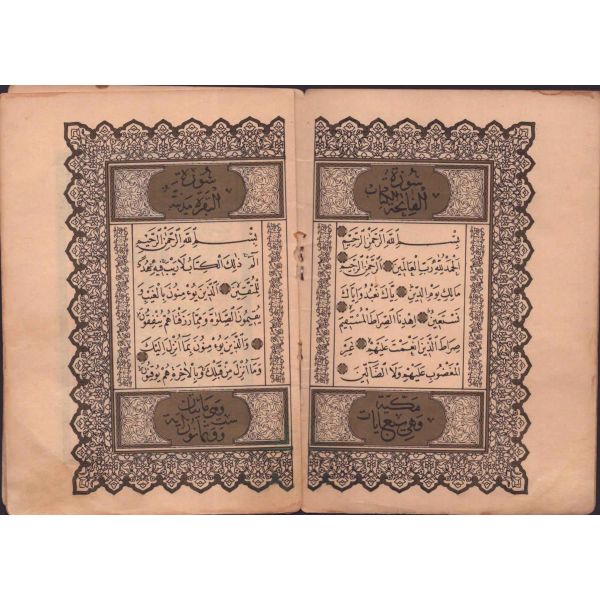 سورة
الفاتحة الكتاب
بسم الله الرحمن الرحيم
الحمد لله رب العالمين الرحمن الرحيم
مالك يوم الدين اياك نعبد واياك
نستعين اهدنا الصراط المستقيم
صراط الذين انعمت عليهم غير
المغضوب عليهم ولا الضالين
مكية
وهي سبع ايات
سورة
البقرة مدنية
بسم الله الرحمن الرحيم
الم ذلك الكتاب لا ريب فيه هدى
للمتقين الذين يؤمنون بالغيب و
يقيمون الصلوة ومما رزقناهم ينفقون
والذين يؤمنون بما انزل اليك
وما انزل من قبلك وبالاخرة هم يوقنون
وهي مايتان
وثمانون اية